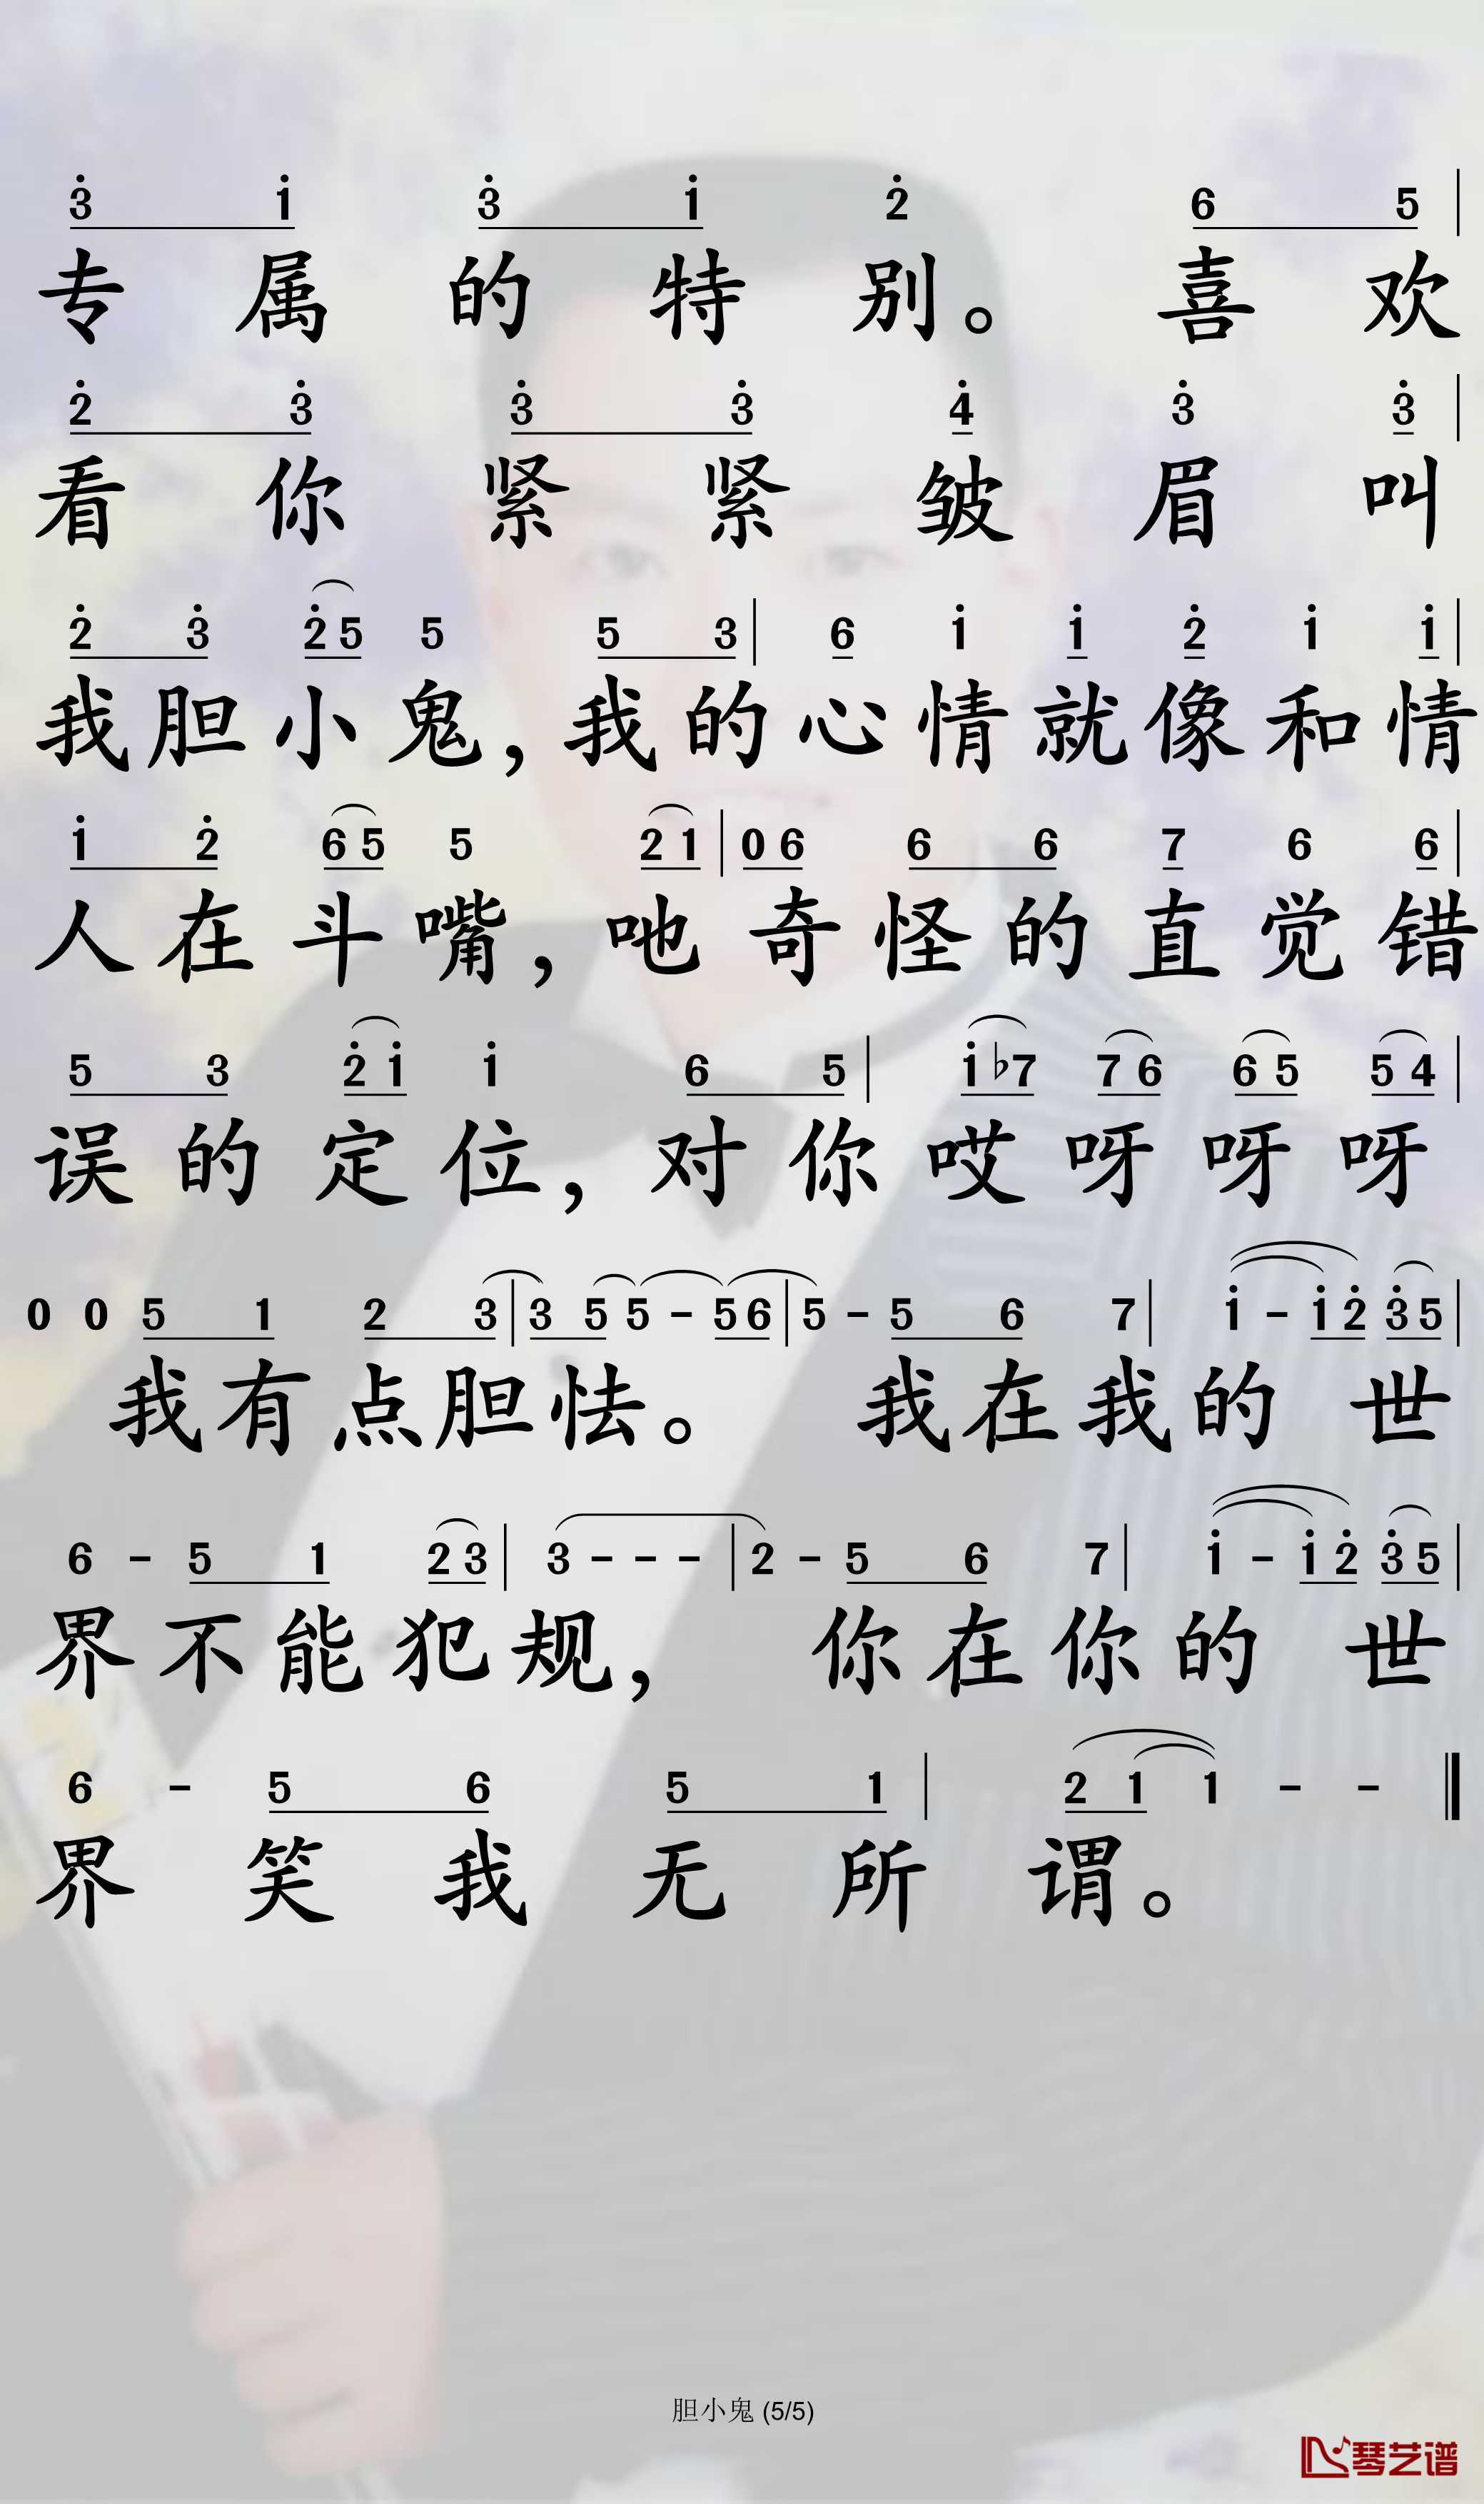 3̇ 1̇ 3̇ 1̇ 2̇ 6 5 |
专属的特别。喜欢
2̇ 3̇ 3̇ 3̇ 4̇ 3̇ 3̇ |
看你紧紧皱眉叫
2̇ 3̇ 2̇ 5 5 5 3 | 6 1̇ 1̇ 2̇ 1̇ 1̇ |
我胆小鬼，我的心情就像和情
1̇ 2̇ 6 5 5 2 1 | 0 6 6 6 7 6 6 |
人在斗嘴，吔奇怪的直觉错
5 3 2̇ 1̇ 1̇ 6 5 | 1̇ ♭7 7 6 6 5 5 4 |
误的定位，对你哎呀呀呀
0 0 5 1 2 3 | 3 5 5 - 5 6 | 5 - 5 6 7 | 1̇ - 1̇ 2̇ 3̇ 5 |
我有点胆怯。我在我的世
6 - 5 1 2 3 | 3 - - - | 2 - 5 6 7 | 1̇ - 1̇ 2̇ 3̇ 5 |
界不能犯规，你在你的世
6 - 5 6 5 1 | 2 1 1 - - ‖
界笑我无所谓。
胆小鬼 (5/5)
琴艺谱